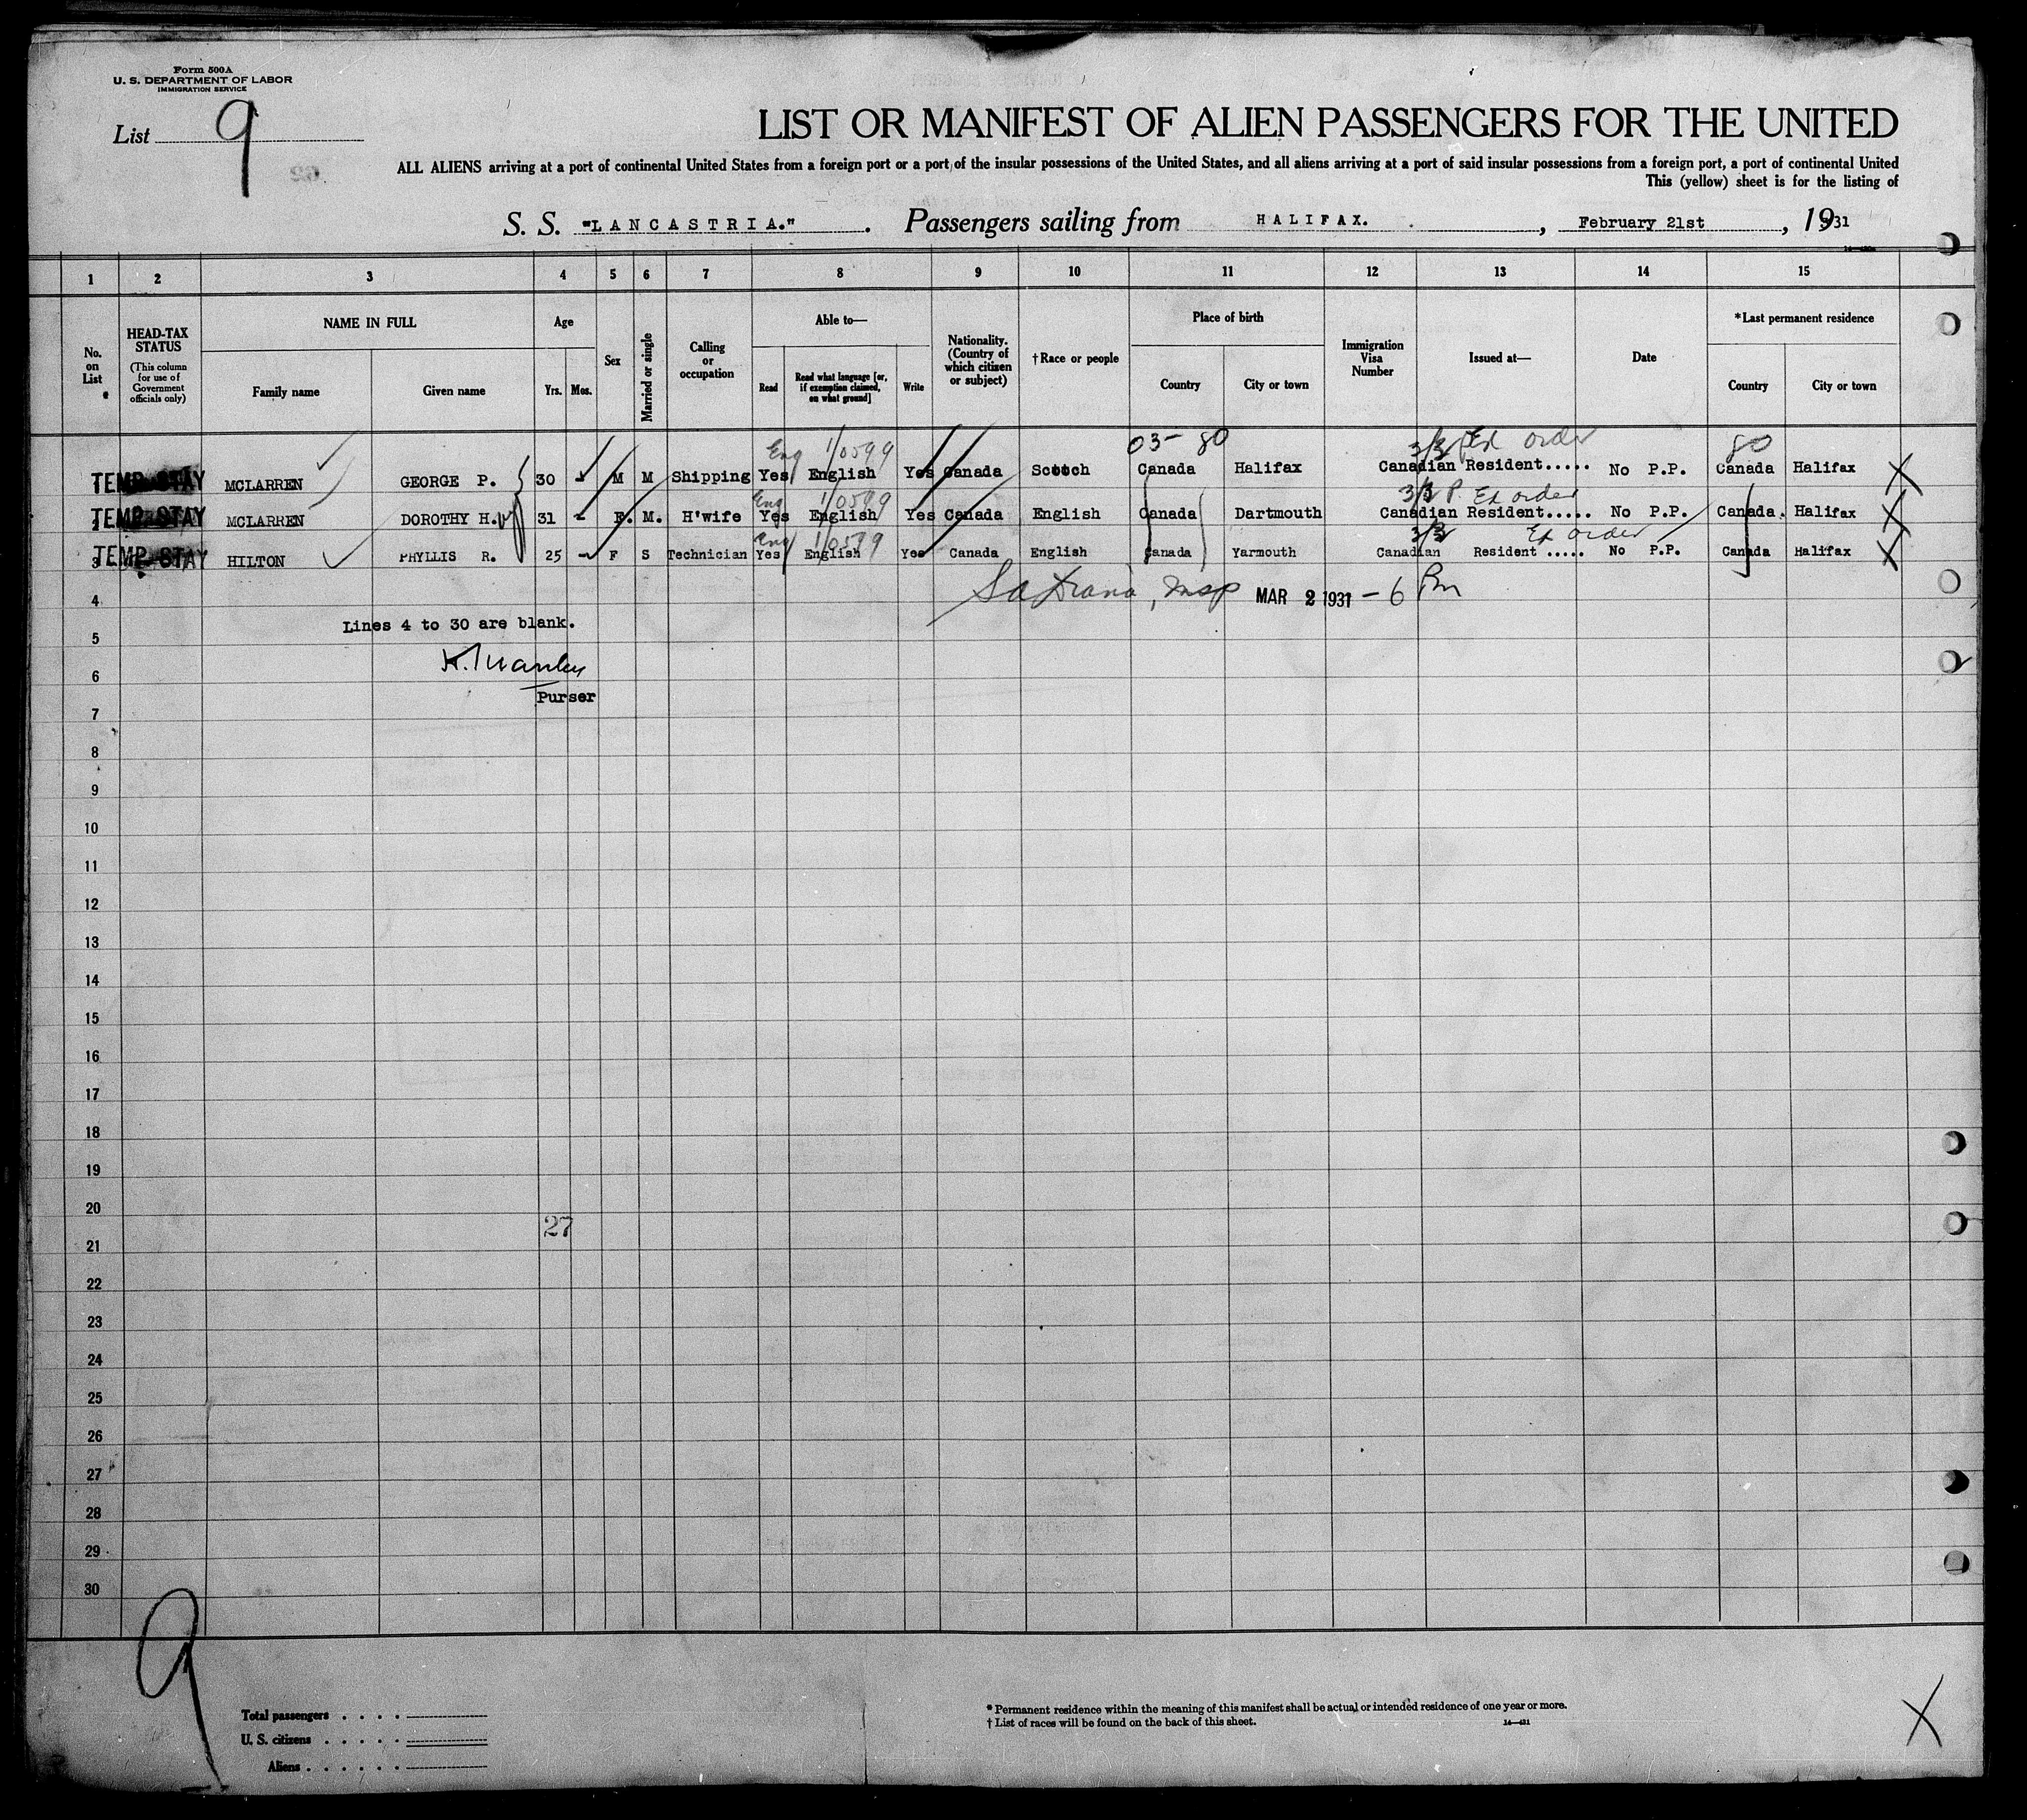 Form 500A
U. S. DEPARTMENT OF LABOR
IMMIGRATION SERVICE
List 9
LIST OR MANIFEST OF ALIEN PASSENGERS FOR THE UNITED
ALL ALIENS arriving at a port of continental United States from a foreign port or a port of the insular possessions of the United States, and all aliens arriving at a port of said insular possessions from a foreign port, a port of continental United
This (yellow) sheet is for the listing of
S. S. "LANCASTRIA." . Passengers sailing from HALIFAX. , February 21st , 1931
1 2 3 4 5 6 7 8 9 10 11 12 13 14 15
No. on List
HEAD-TAX STATUS
(This column for use of Government officials only)
NAME IN FULL
Family name Given name
Age
Yrs. Mos.
Sex
Married or single
Calling or occupation
Able to—
Read
Read what language [or, if exemption claimed, on what ground]
Write
Nationality. (Country of which citizen or subject)
†Race or people
Place of birth
Country City or town
Immigration Visa Number
Issued at—
Date
*Last permanent residence
Country City or town
Eng 1/0599 03- 80 3/3 Ex order 80
1 TEMP. STAY MCLARREN GEORGE P. 30 - M M Shipping Yes English Yes Canada Scotch Canada Halifax Canadian Resident..... No P.P. Canada Halifax X
Eng 1/0599 3/3 P. Ex order
2 TEMP. STAY MCLARREN DOROTHY H. 31 - F. M. H'wife Yes English Yes Canada English Canada Dartmouth Canadian Resident..... No P.P. Canada. Halifax X
Eng 1/0599 3/3 Ex order
3 TEMP. STAY HILTON PHYLLIS R. 25 - F S Technician Yes English Yes Canada English Canada Yarmouth Canadian Resident ..... No P.P. Canada Halifax X
4 Insp MAR 2 1931 - 6 Pm
Lines 4 to 30 are blank.
5
K. Manley
6
Purser
7
8
9
10
11
12
13
14
15
16
17
18
19
20
27
21
22
23
24
25
26
27
28
29
30
9
Total passengers . . . .
U. S. citizens . . . . .
Aliens . . . . . .
* Permanent residence within the meaning of this manifest shall be actual or intended residence of one year or more.
† List of races will be found on the back of this sheet.
14—431
X